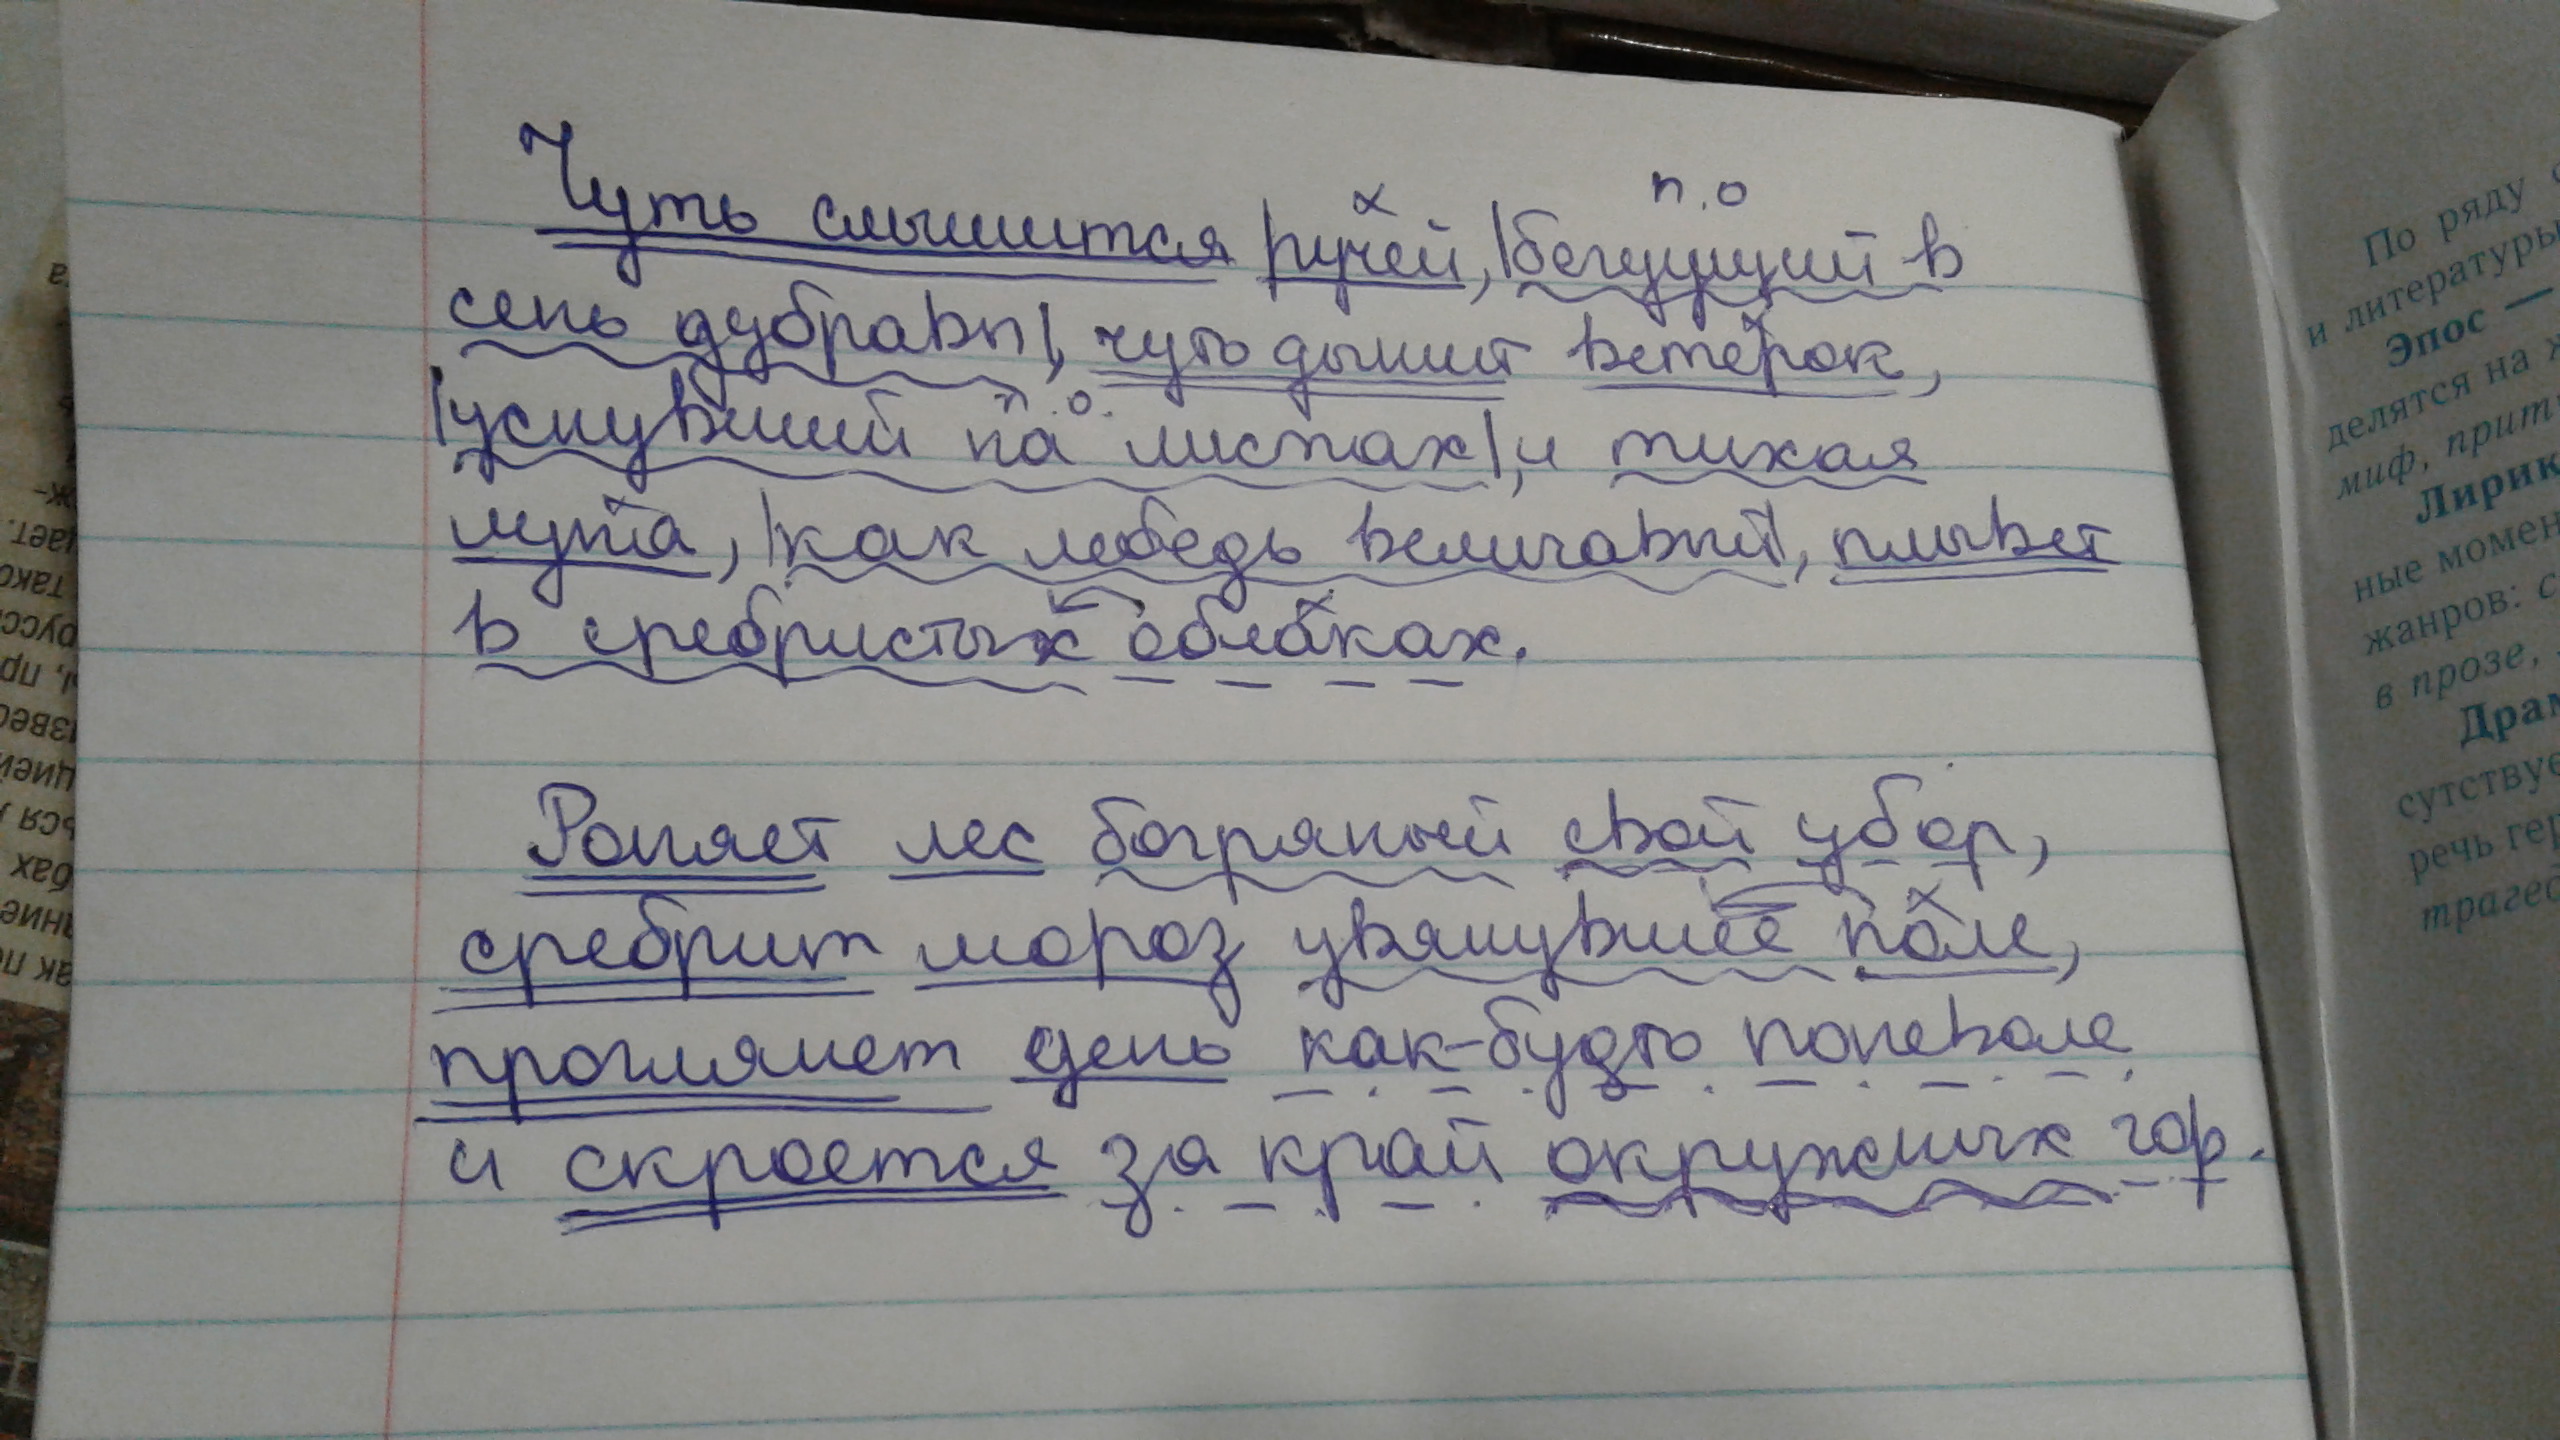 п.о
Чуть слышится ручей, бегущий в
сень дубравы, чуть дышит ветерок,
п.о.
уснувший на листах, и тихая
луна, как лебедь величавый, плывет
в сребристых облаках.
Роняет лес богряный свой убор,
сребрит мороз увянувшее поле,
проглянет день как-будто поневоле
и скроется за край окружных гор.
По ряду
и литературы
Эпос —
делятся на
миф, прит
Лирик
ные момен
жанров: с
в прозе,
Драм
сутствуе
речь гер
трагед